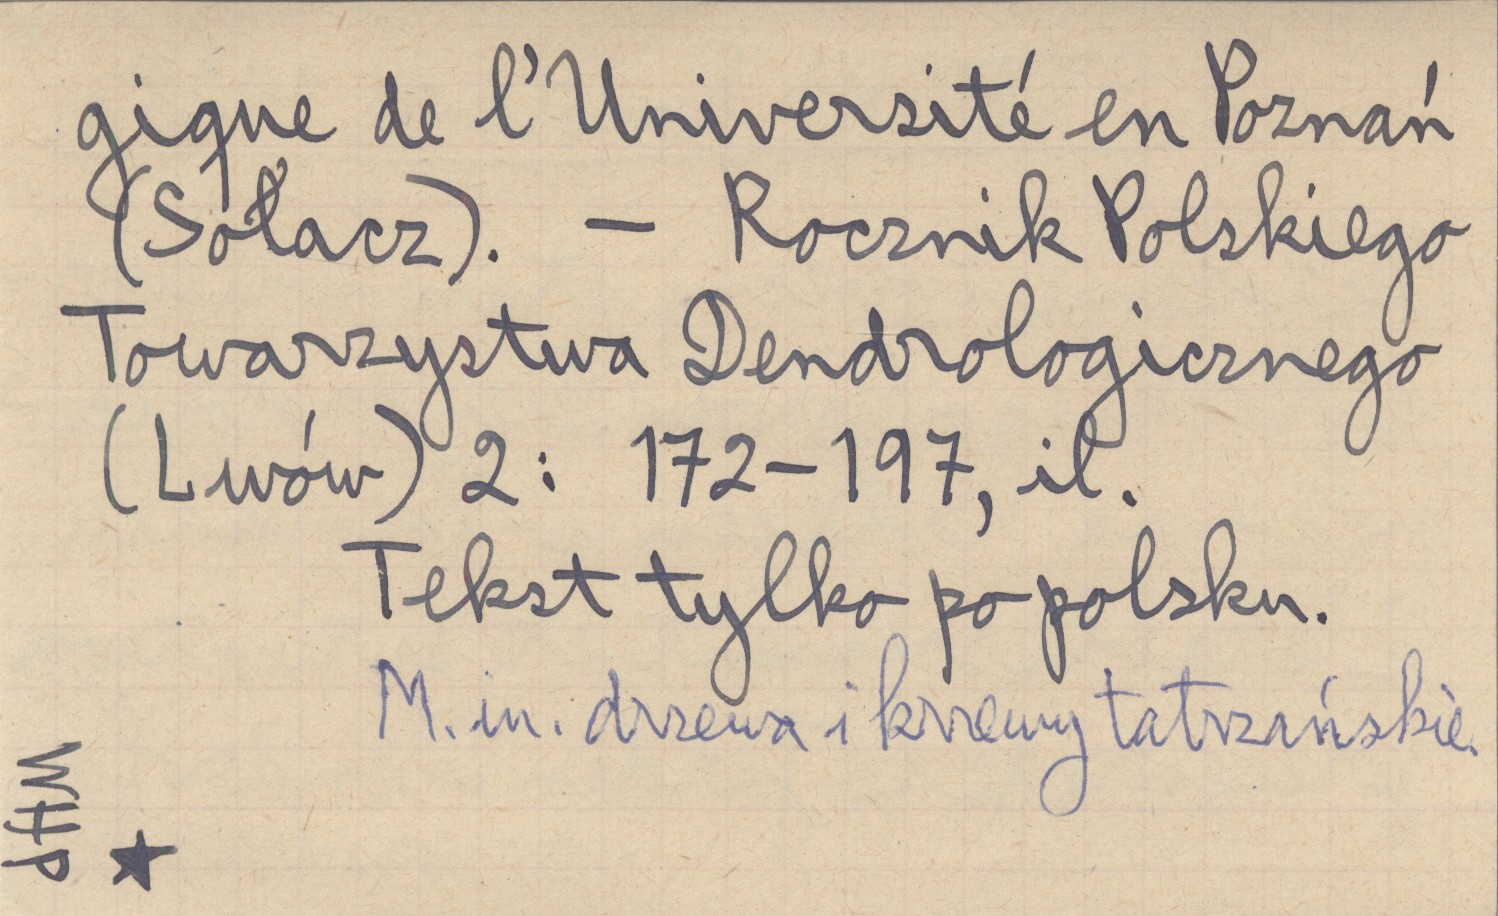 gique de l'Université en Poznań
(Sołacz). – Rocznik Polskiego
Towarzystwa Dendrologicznego
(Lwów) 2: 172–197, il.
Tekst tylko po polsku.
M. in. drzewa i krzewy tatrzańskie.
WHP